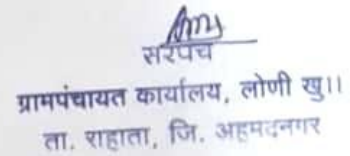 सरपंच
ग्रामपंचायत कार्यालय, लोणी खु।।
ता. राहाता, जि. अहमदनगर